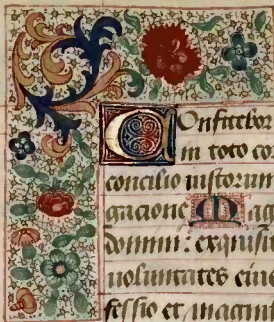 Confitebor
in toto co
concilio iustorum
gacione Mag
domini: exquisit
uoluntates eiu
fessio et magni